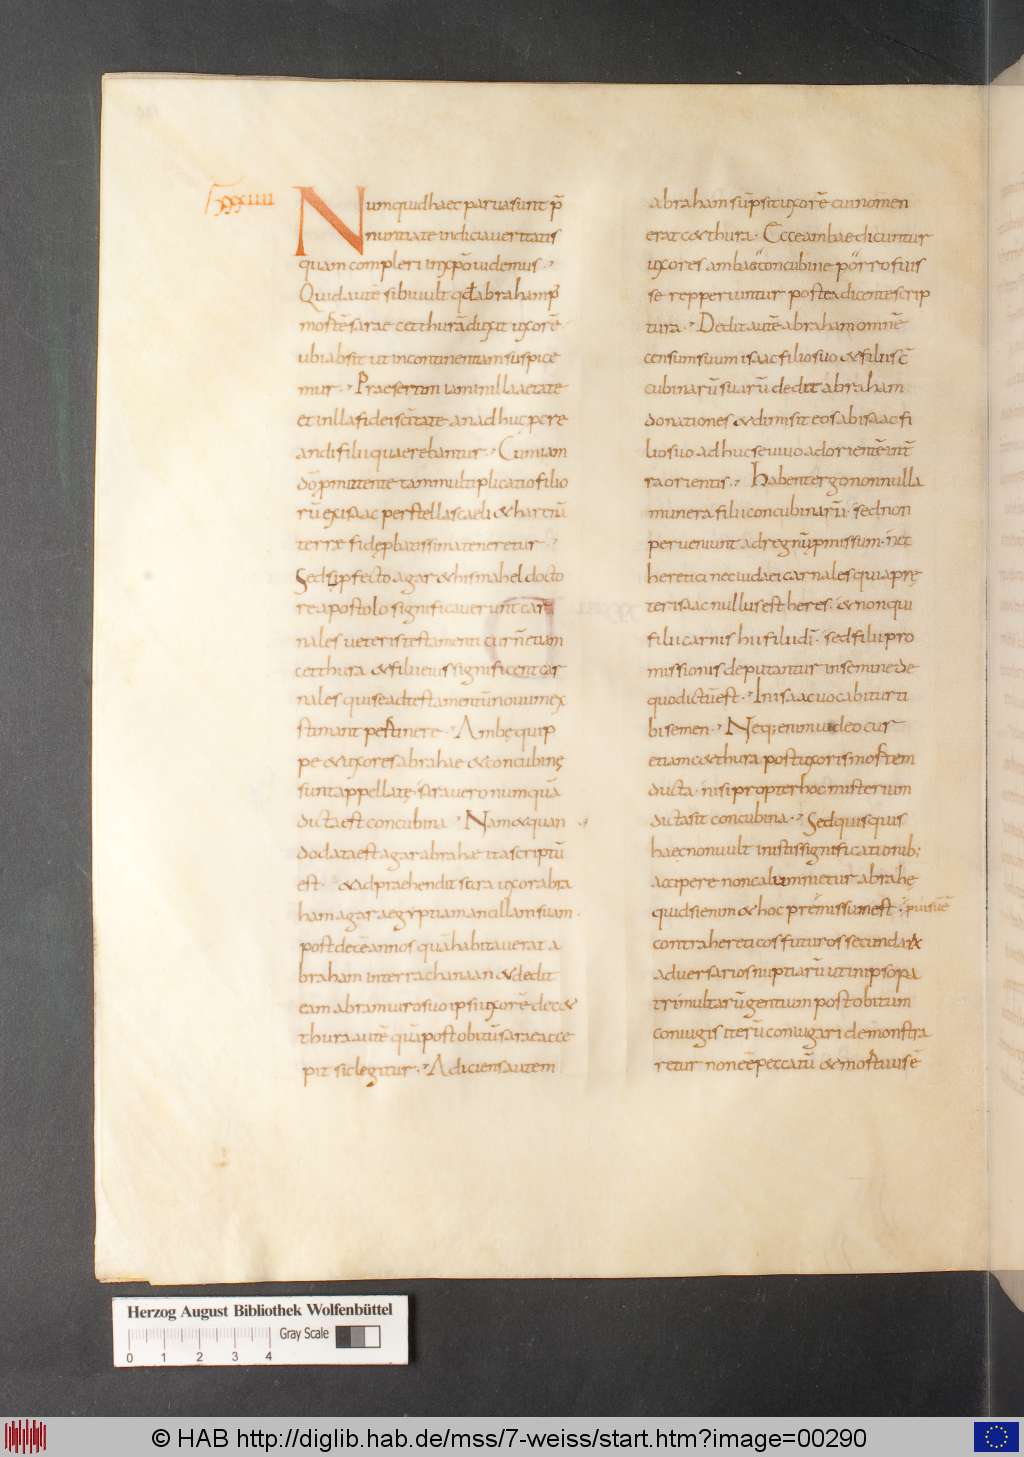 xxxiiii
Numquid haec parua sunt p̄
nuntiate indicia ueritatis
quam compleri in xp̄o uidemus
Quid autē sibi uult qd abraham p
mortē sarae cetthurā duxit uxorē
ubi absit ut incontinentiam suspice
mur. Praesertim iam in illa aetate
et in illa fidei scītate. an adhuc pcre
andi filii quaerebantur. Cum iam
dō pmittente tam multiplicatio filio
rū ex isaac per stellas caeli & harenā
terrae fide pbatissima teneretur.
Sed si pfecto agar & hismahel docto
re apostolo significauerunt car
nales ueteris testamenti cur n̄ etiam
cetthura & filii eius significent car
nales qui se ad testamentū nouum ex
stimant pertinere. Ambę quip
pe & uxores abrahae & concubinę
sunt appellatę. sara uero numquā
dicta est concubina. Nam & quan
do data est agar abrahae ita scriptū
est. & adpraehendit sara uxor abra
ham agar aegyptiam ancillam suam.
post decē annos quā habitauerat a
braham in terra chanaan & dedit
eam abram uiro suo ipsi uxorē. de c&
thura autē quā post obitū sarae acce
pit sic legitur. Adiciens autem
abraham sūpsit uxorē cui nomen
erat c&thura. Ecce ambae dicuntur
uxores ambae concubine porro fuis
se repperiuntur postea dicente scrip
tura. Dedit autē abraham omnē
censum suum isaac filio suo & filiis c̄
cubinarū suarū dedit abraham
donationes & dimisit eos ab isaac fi
lio suo adhuc se uiuo ad orientē in t̄
ra orientis. Habent ergo nonnulla
munera filii concubinarū. sed non
perueniunt ad regnū pmissum. nec
heretici nec iudaei carnales quia prę
ter isaac nullus est heres. & non qui
filii carnis hii filii dī. sed filii pro
missionis deputantur in semine de
quo dictū est. In isaac uocabitur ti
bi semen. Neq; enim uideo cur
etiam c&thura post uxoris mortem
ducta. nisi propter hoc misterium
dicta sit concubina. Sed quisquis
haec non uult in istis significationib;
accipere non calumnietur abrahę
quid si enim & hoc premissum est
contra hereticos futuros secundarū
aduersarios nuptiarū ut in ipso pa
tri multarū gentium post obitum
coniugis iterū coniugari demonstra
retur non eē peccatū & mortui sē
Herzog August Bibliothek Wolfenbüttel
Gray Scale
0 1 2 3 4
© HAB http://diglib.hab.de/mss/7-weiss/start.htm?image=00290